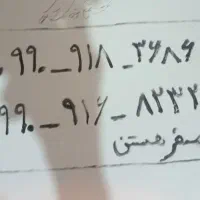 ۰۹۹۰_۹۱۸_۳۶۸۶
۹۹۰_۹۱۶_۸۲۳۲
صفر هستن